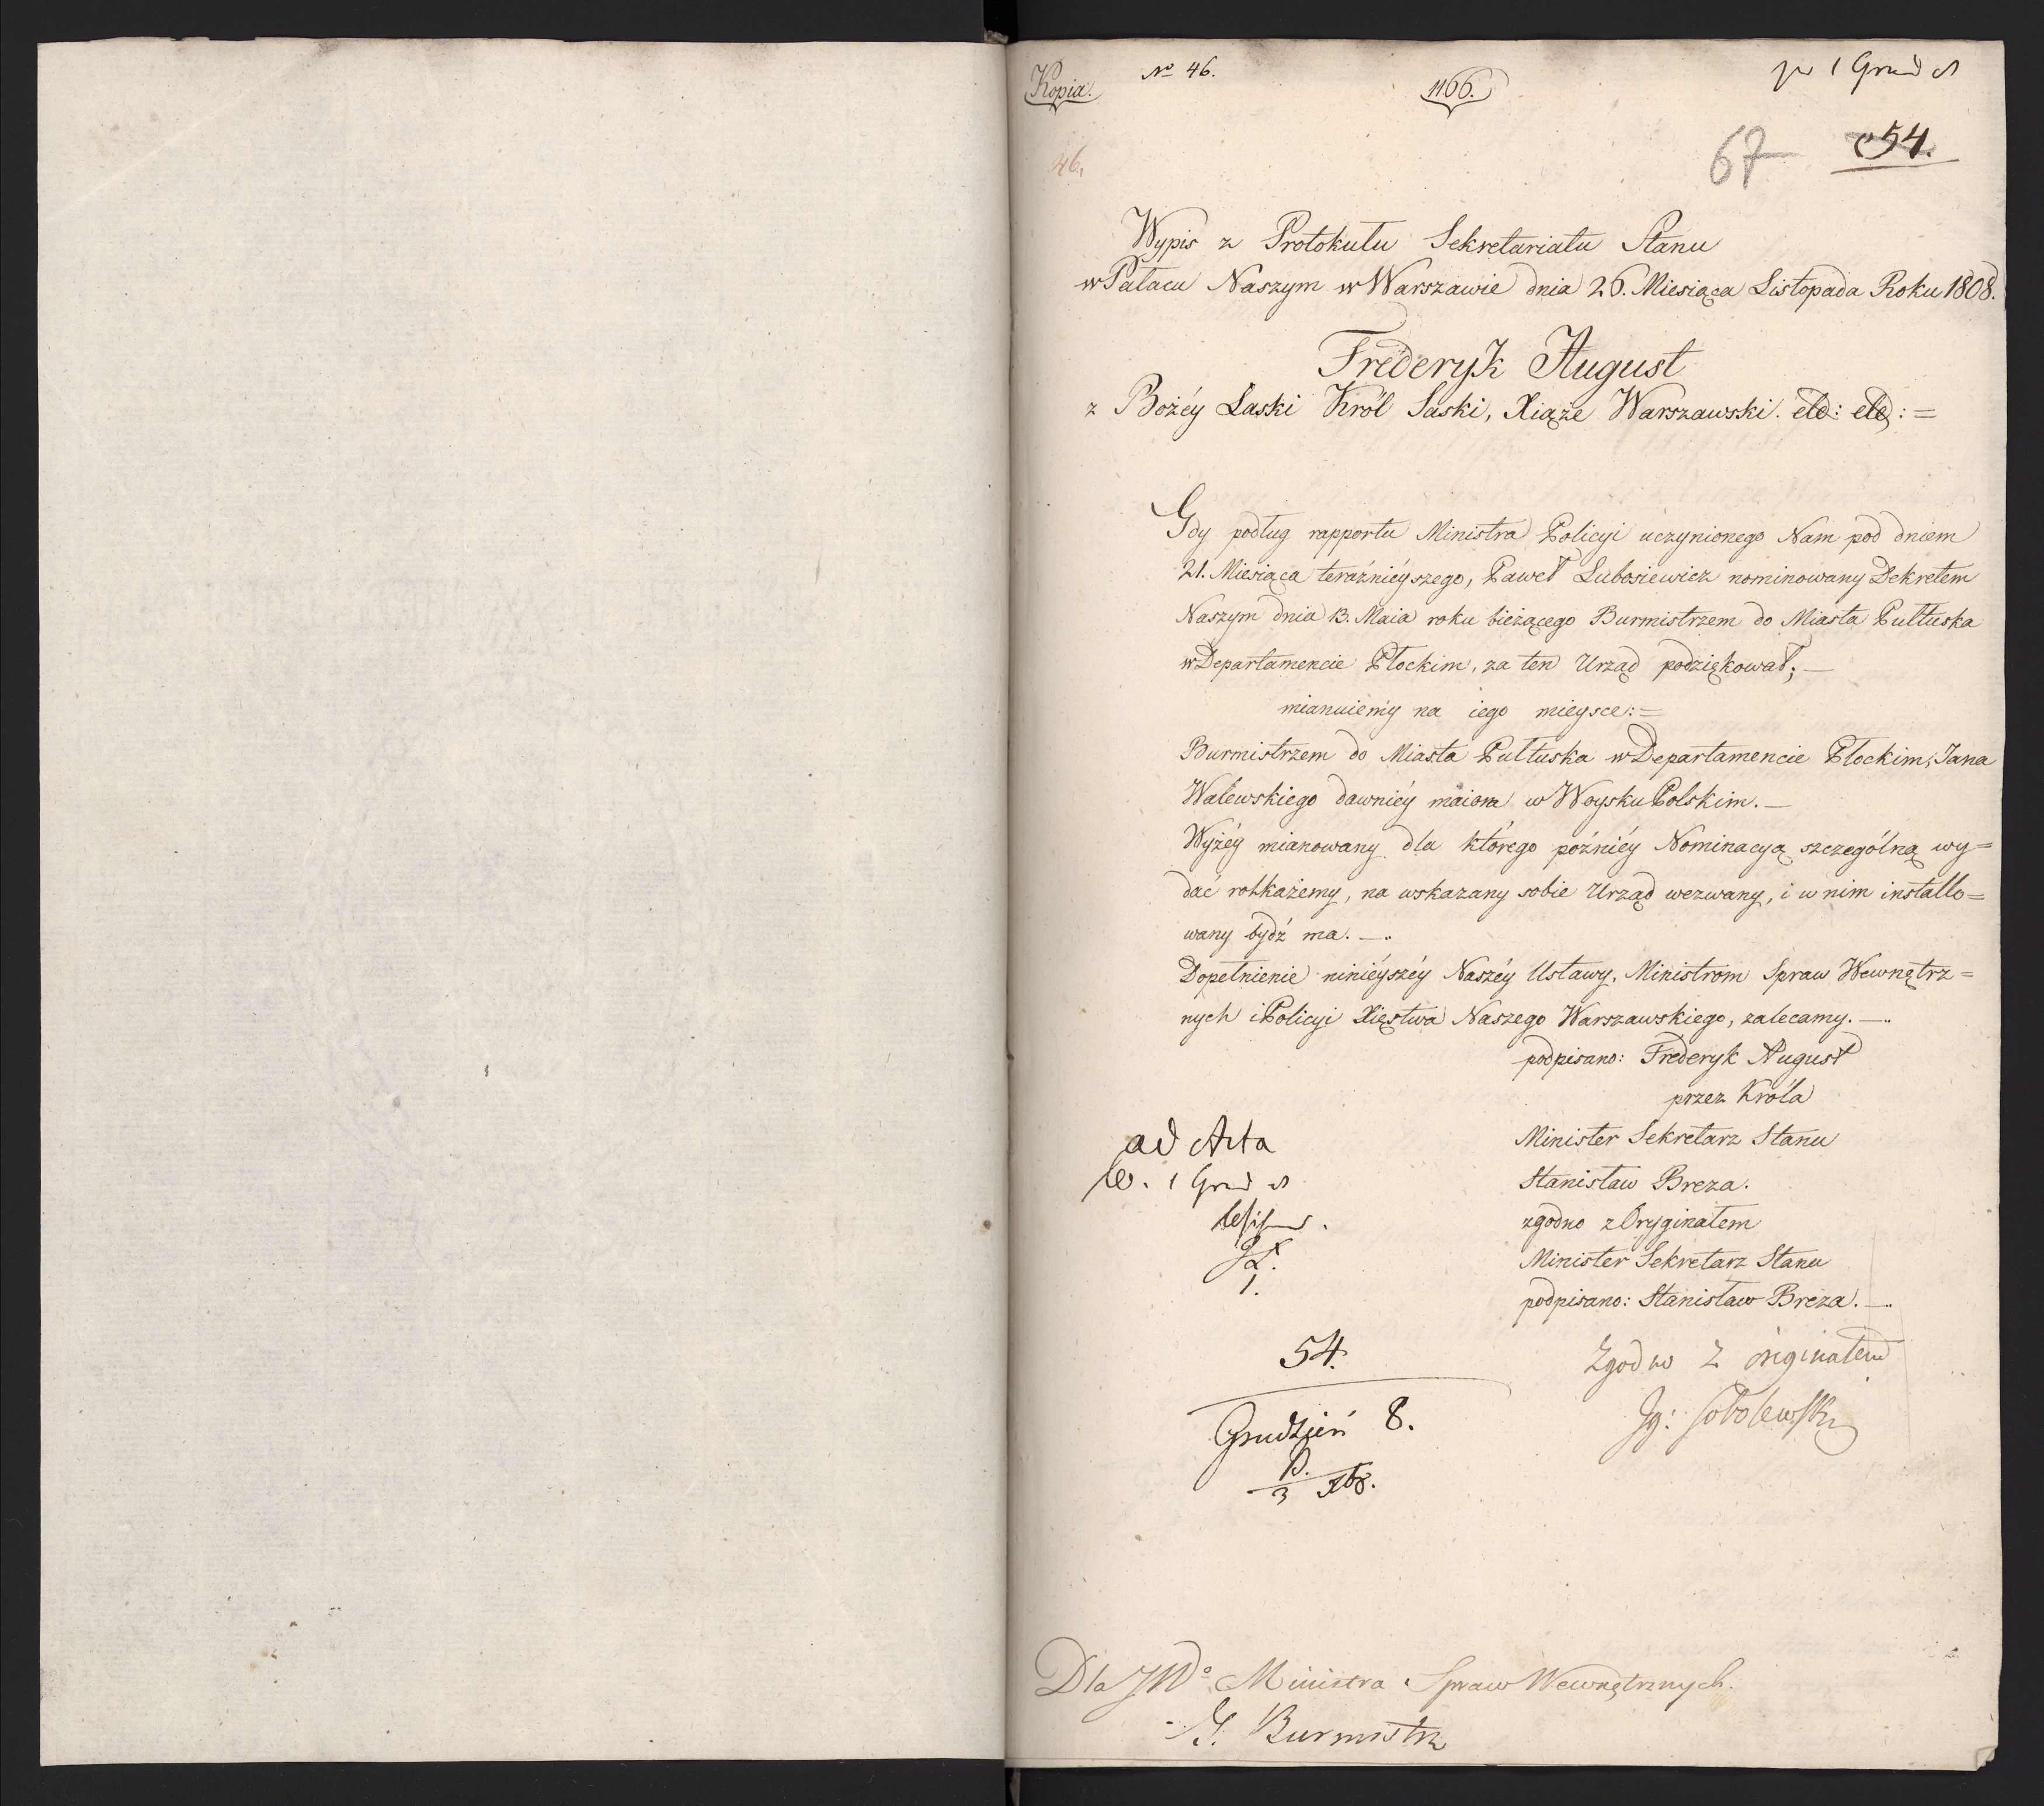 Kopia.
No 46.
1166.
1 Grud
46.
67
54.
Wypis z Protokułu Sekretariatu Stanu
w Pałacu Naszym w Warszawie dnia 26. Miesiąca Listopada Roku 1808.
Frederyk August
z Bożéy Łaski Król Saski, Xiąże Warszawski. etc: etc: =
Gdy podług rapportu Ministra Policyi uczynionego Nam pod dniem
21. Miesiąca teraźnieyszego, Paweł Lubosiewicz nominowany Dekretem
Naszym dnia 13. Maia roku bieżącego Burmistrzem do Miasta Pułtuska
w Departamencie Płockim, za ten Urząd podziękował; —
mianuiemy na iego mieysce: =
Burmistrzem do Miasta Pułtuska w Departamencie Płockim, Jana
Walewskiego dawniéy maiora w Woysku Polskim. —
Wyżéy mianowany dla którego poźniéy Nominacyą szczególną wy=
dać rozkażemy, na wskazany sobie Urząd wezwany, i w nim installo=
wany bydź ma. —..
Dopełnienie ninieyszéy Naszéy Ustawy, Ministrom Spraw Wewnętrz=
nych i Policyi Xięstwa Naszego Warszawskiego, zalecamy. —..
podpisano: Frederyk August
przez Króla
Minister Sekretarz Stanu
Stanisław Breza.
zgodno z Oryginałem
Minister Sekretarz Stanu
podpisano: Stanisław Breza. —..
ad Acta
1 Grud
1.
54.
Grudzień 8.
3
Zgodno z originałem
Jg: Sobolewski
Dla JWo Ministra Spraw Wewnętrznych.
Burmistrz